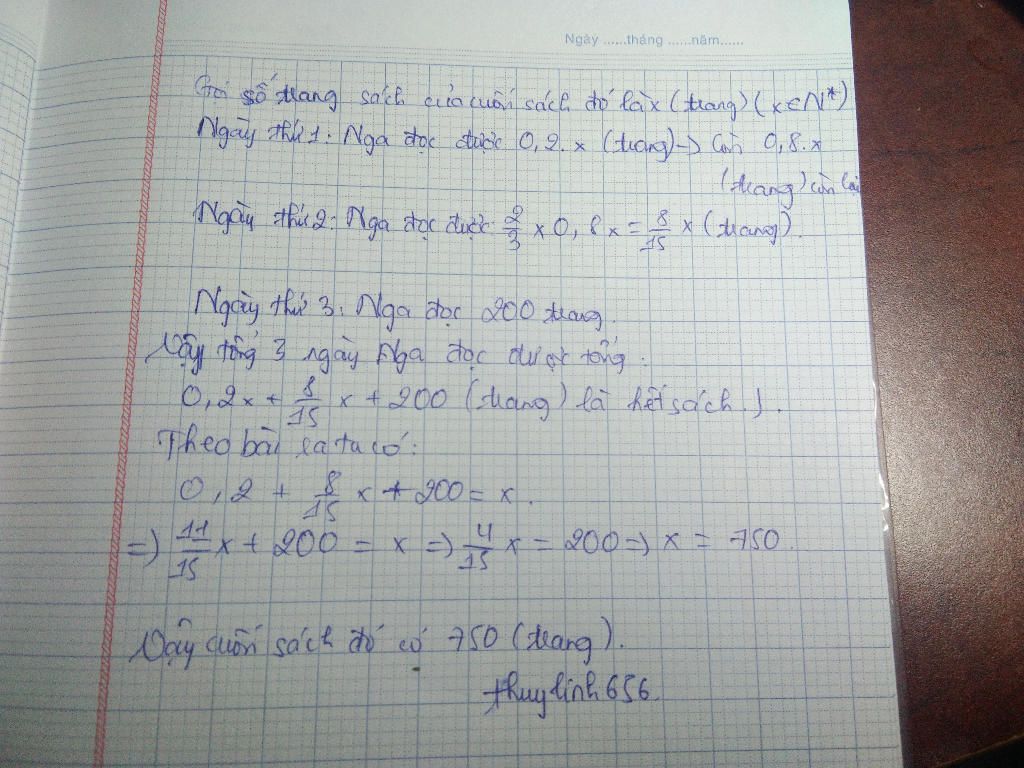 Ngày ......tháng ......năm......
Gọi số trang sách của cuốn sách đó là x (trang) (x ∈ N*)
Ngày thứ 1: Nga đọc được 0,2.x (trang) → Còn 0,8.x
(trang) còn lại
Ngày thứ 2: Nga đọc được: 2/3 x 0,8x = 8/15 x (trang).
Ngày thứ 3: Nga đọc 200 trang.
Vậy tổng 3 ngày Nga đọc được tổng.
0,2x + 8/15 x + 200 (trang) là hết sách).
Theo bài ra ta có:
0,2 + 8/15 x + 200 = x.
=> 11/15 x + 200 = x => 4/15 x = 200 => x = 750.
Vậy cuốn sách đó có 750 (trang).
thuylinh656.